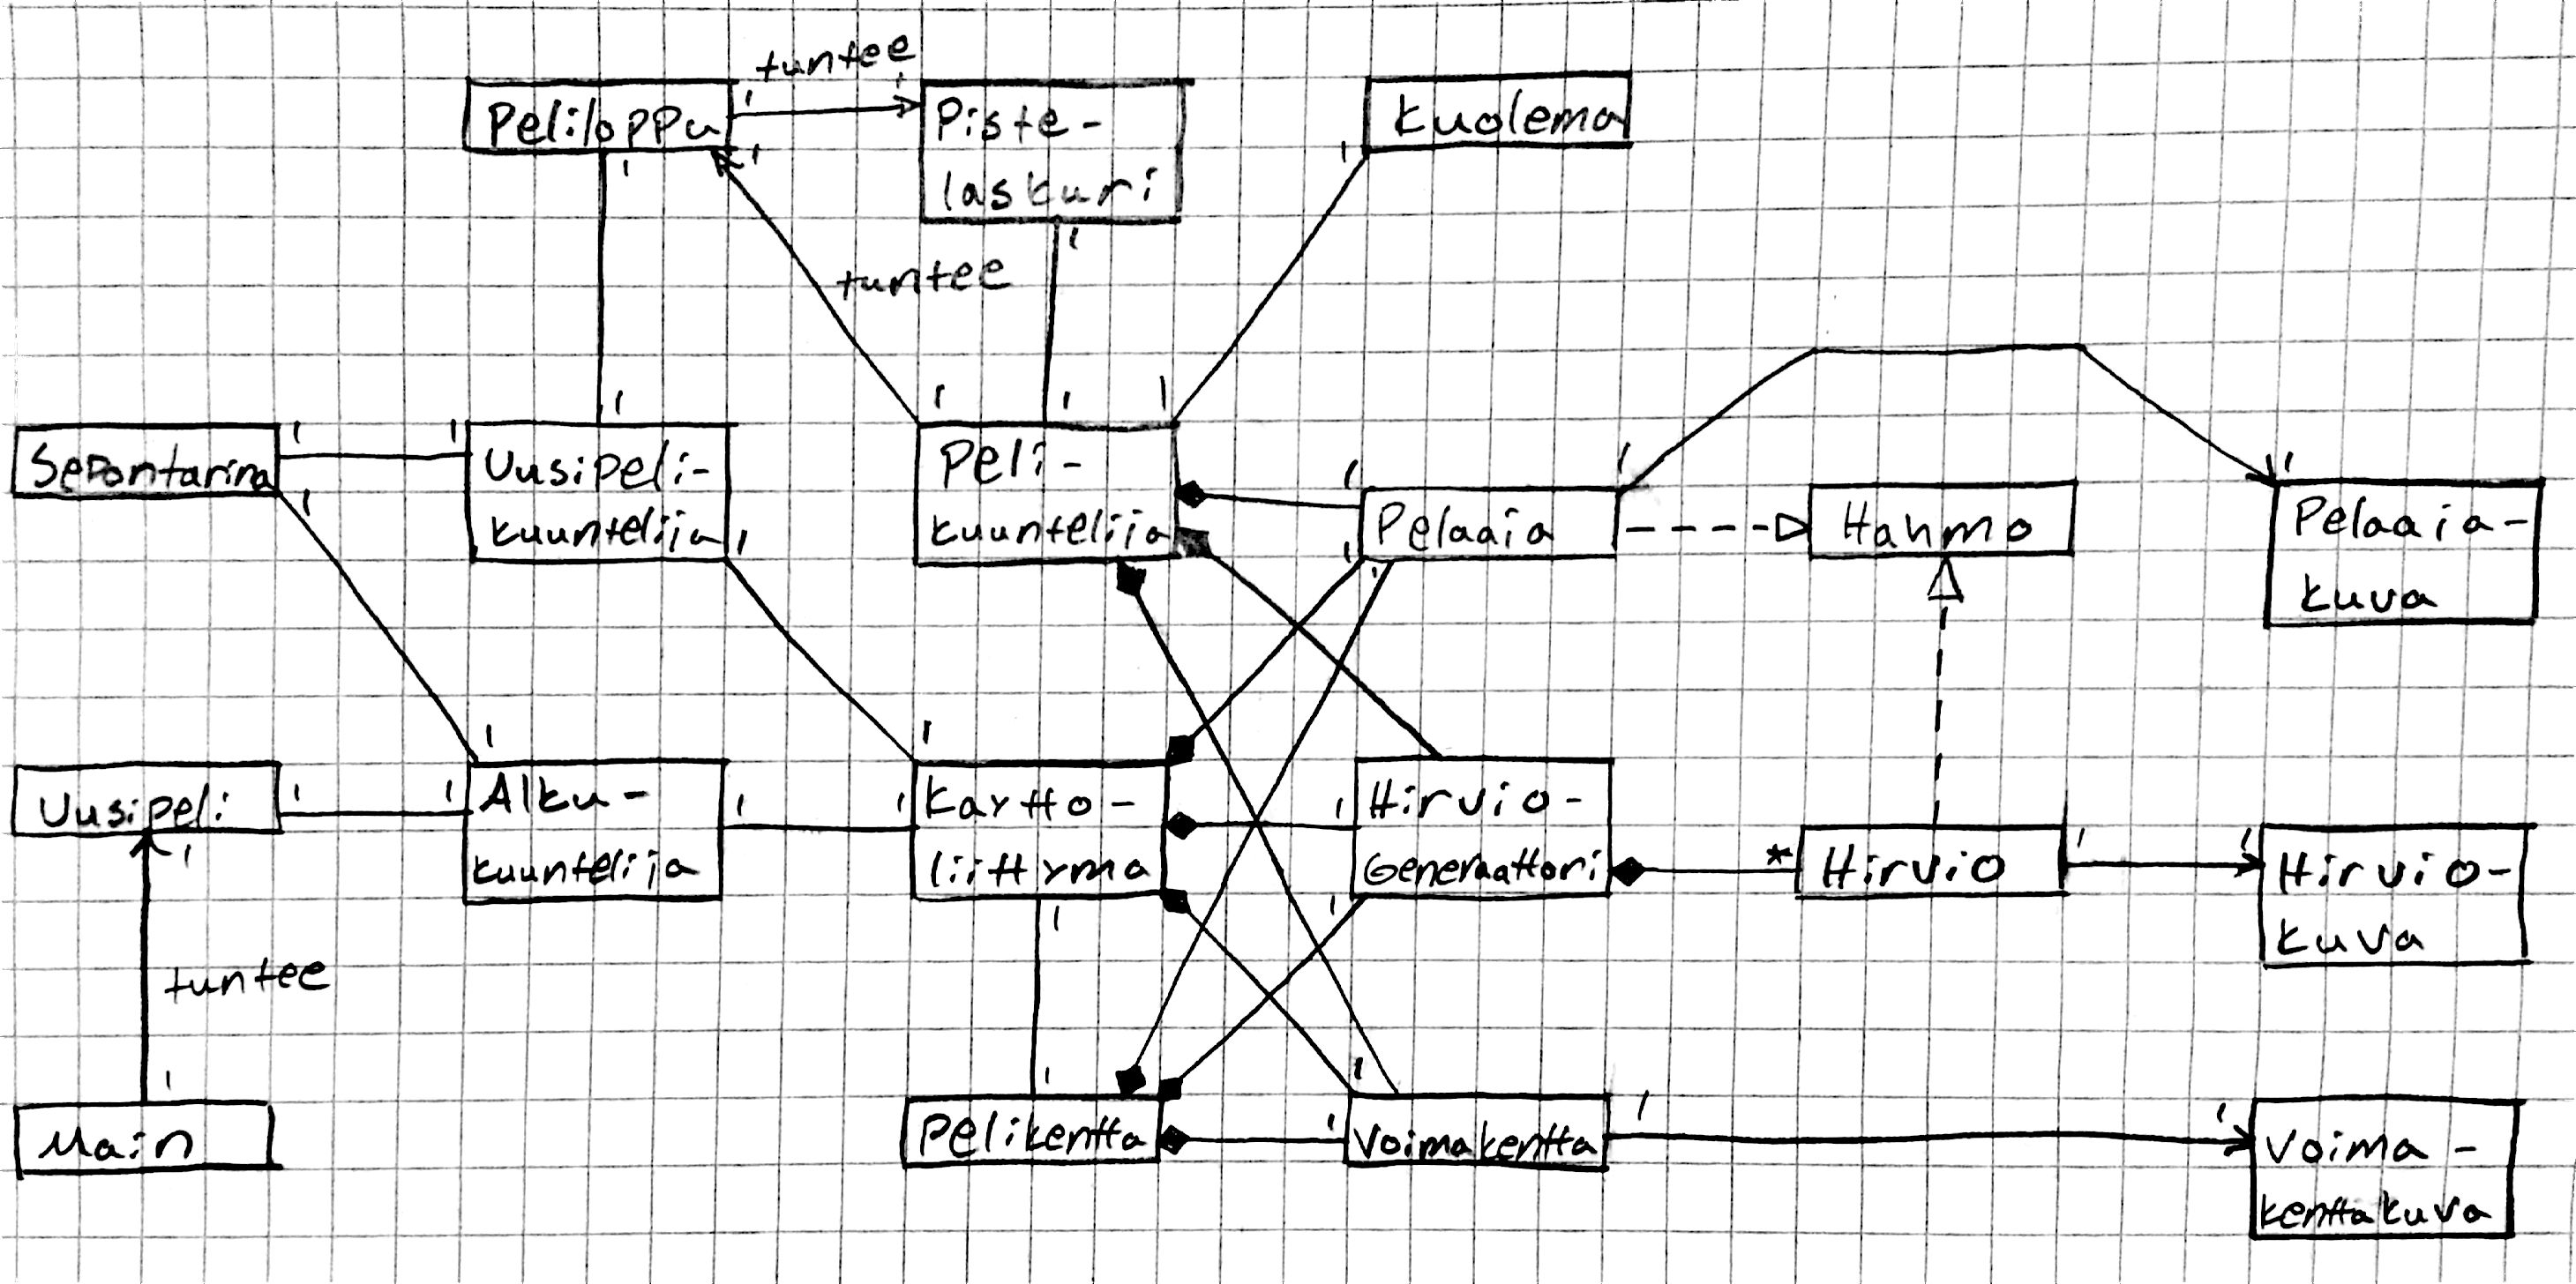 tuntee
Peliloppu
1
1
Piste-
laskuri
Kuolema
1
1
1
1
tuntee
1
1
1
1
Sepontarina
1
1
1
Uusipeli-
kuuntelija
1
Peli-
kuuntelija
1
1
1
Pelaaja
1
Hahmo
1
Pelaaja-
kuva
1
1
Uusipeli
1
1
1
Alku-
kuuntelija
1
1
Kartto-
liittyma
1
1
1
Hirvio-
Generaattori
*
Hirvio
1
1
Hirvio-
kuva
tuntee
1
Main
1
Pelikentta
1
1
Voimakentta
1
1
Voima-
kenttakuva